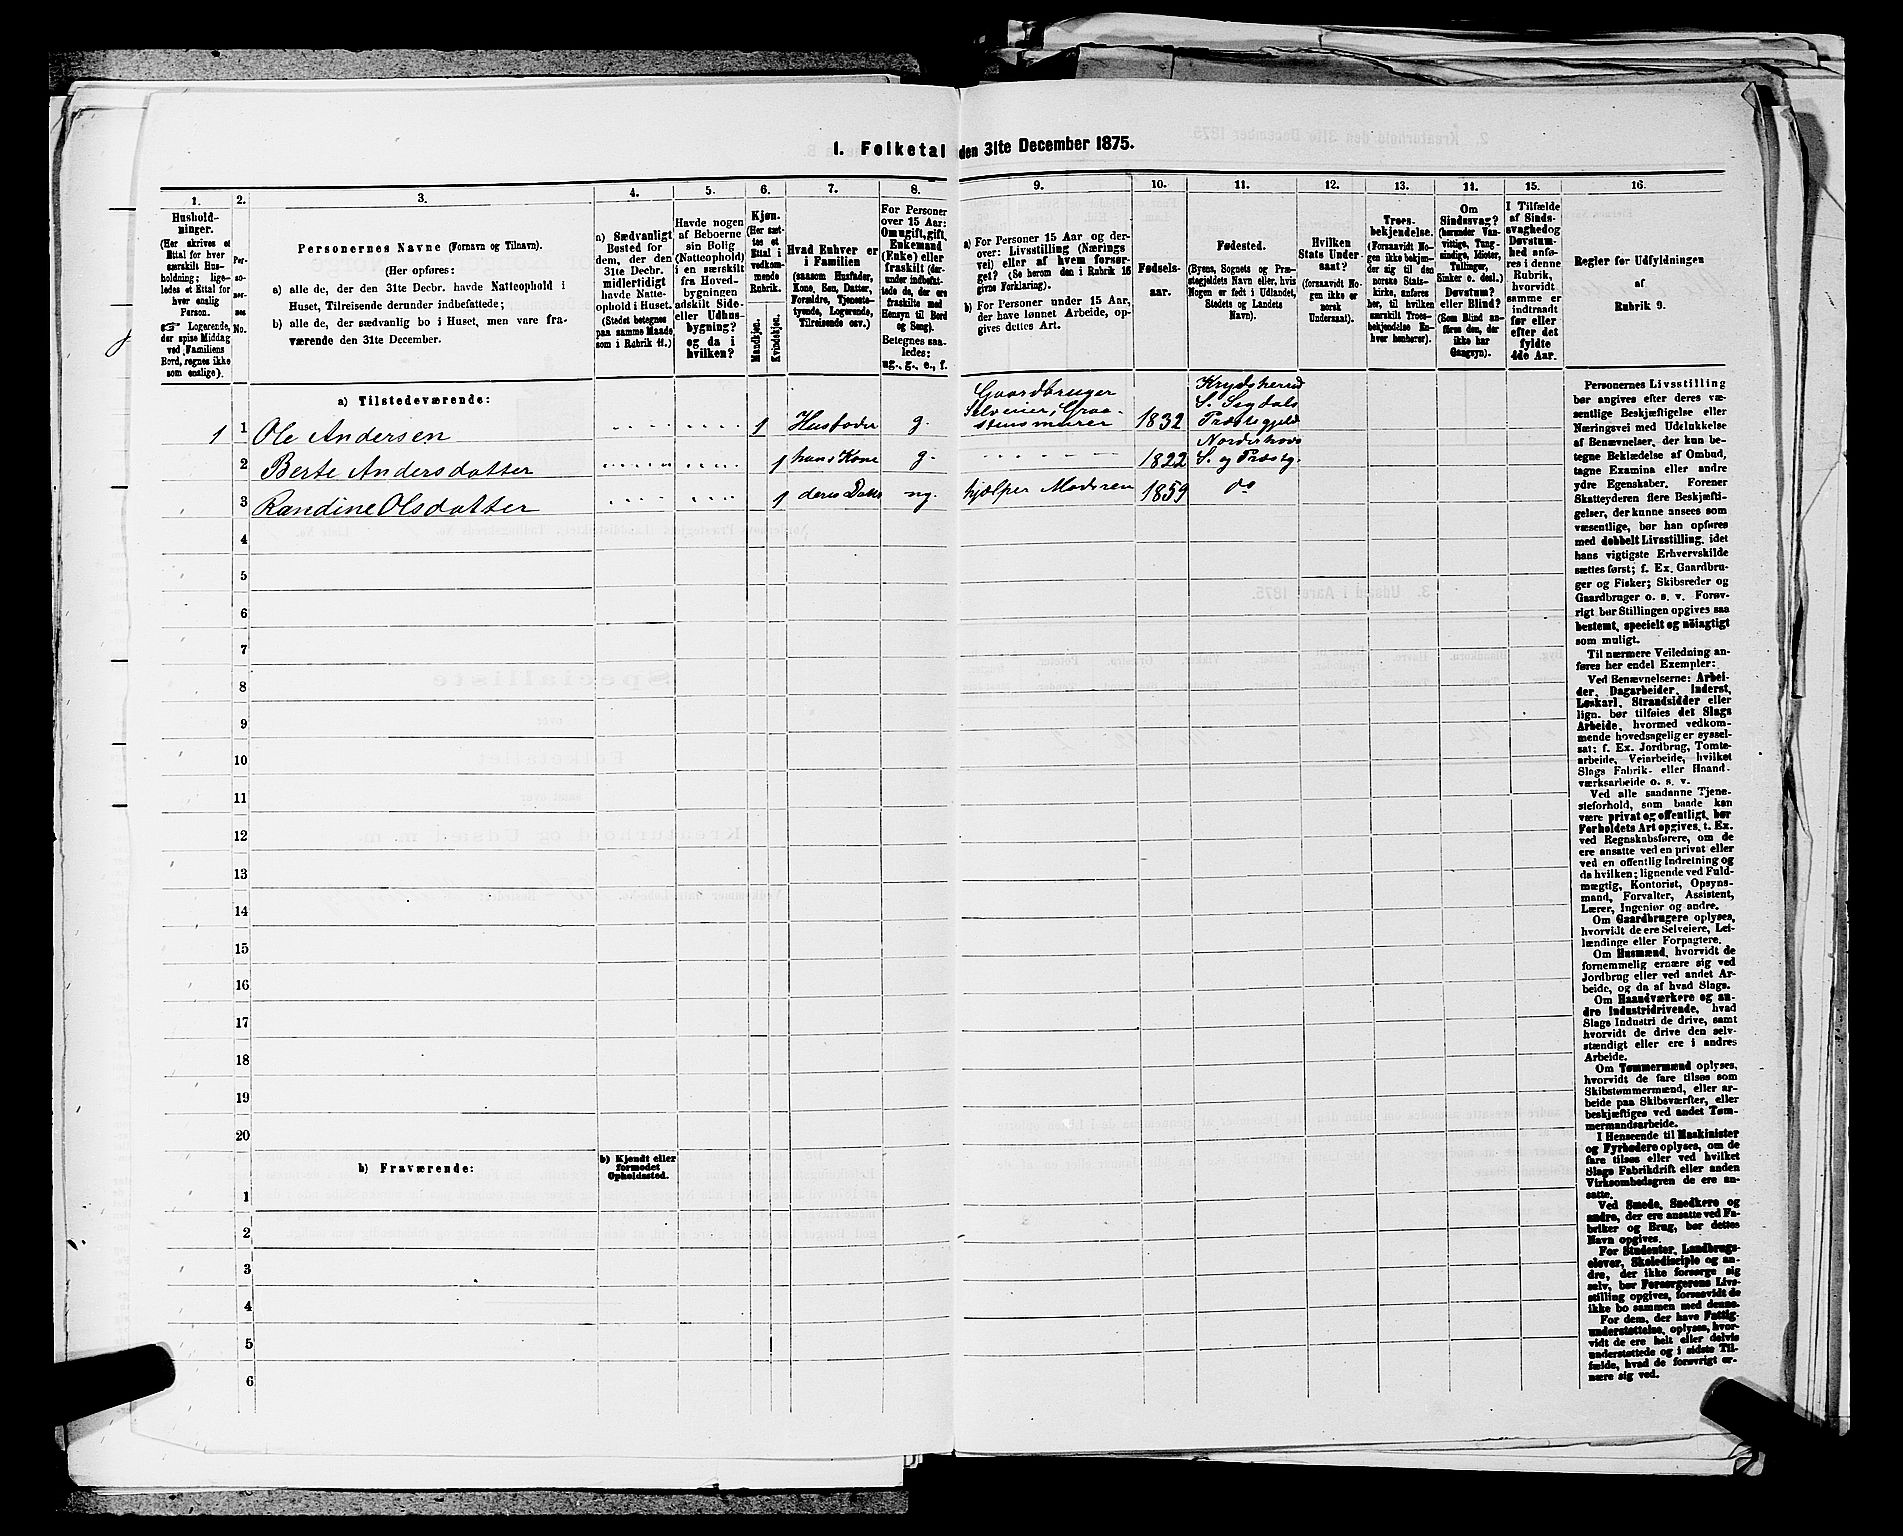 1. Folketal den 31te December 1875.
1.
2.
3.
4.
5.
6.
7.
8.
9.
10.
11.
12.
13.
14.
15.
16.
Hushold-
ninger.
(Her skrives et
Ettal for hver
særskilt Hus-
holdning; lige-
ledes et Ettal for
hver enslig
Person.
☞ Logerende,
der spise Middag
ved Familiens
Bord, regnes ikke
som enslige).
Per-
so-
ner-
nes
No.
Personernes Navne (Fornavn og Tilnavn).
(Her opføres:
a) alle de, der den 31te Decbr. havde Natteophold i
Huset, Tilreisende derunder indbefattede;
b) alle de, der sædvanlig bo i Huset, men vare fra-
værende den 31te December.
a) Sædvanligt
Bosted for
dem, der den
31te Decbr.
midlertidigt
havde Natte-
ophold i Huset.
(Stedet betegnes
paa samme Maade
som i Rubrik 11.)
Havde nogen
af Beboerne
sin Bolig
(Natteophold)
i en særskilt
fra Hoved-
bygningen
adskilt Side-
eller Udhus-
bygning?
og da i
hvilken?
Kjøn.
(Her sæt-
tes et
Ettal i
vedkom-
mende
Rubrik.
Mandkjøn.
Kvindekjøn.
Hvad Enhver er
i Familien
(saasom Husfader,
Kone, Søn, Datter,
Forældre, Tjeneste-
tyende, Logerende,
Tilreisende osv.)
For Personer
over 15 Aar:
Om ugift, gift,
Enkemand
(Enke) eller
fraskilt (der-
under indbefat-
tede de, der ere
fraskilte med
Hensyn til Bord
og Seng).
Betegnes saa-
ledes:
ug., g., e., f.
a) For Personer 15 Aar og der-
over: Livsstilling (Nærings
vei) eller af hvem forsør-
get? (Se herom den i Rubrik 16
givne Forklaring).
b) For Personer under 15 Aar,
der have lønnet Arbeide, op-
gives dettes Art.
Fødsels-
aar.
Fødested.
(Byens, Sognets og Præ-
stegjeldets Navn eller, hvis
Nogen er født i Udlandet,
Stedets og Landets
Navn).
Hvilken
Stats Under-
saat?
(forsaavidt No-
gen ikke er
norsk
Undersaat).
Troes-
bekjendelse.
(Forsaavidt No-
gen ikke bekjen-
der sig til den
norske Stats-
kirke, anføres
her, til hvilken
særskilt Troes-
bekjendelse En-
hver henhører).
Om
Sindssvag?
(herunder Van-
vittige, Tung-
sindige, Idioter,
Tullinger,
Sinker o. desl.)
Døvstum?
eller Blind?
(Som Blind an-
føres den, der
ikke har
Gangsyn).
I Tilfælde
af Sinds-
svaghed og
Døvstum-
hed anfø-
res i denne
Rubrik,
hvorvidt
samme er
indtraadt
før eller
efter det
fyldte
4de Aar.
Regler for Udfyldningen
af
Rubrik 9.
a) Tilstedeværende:
1 1 Ole Andersen 1 Husfader g. Gaardbruger Selveier, Graa-stensmurer 1832 Krydsherred S. Sigdals Præstegjeld
2 Berte Andersdatter 1 hans Kone g. 1822 Norderhovs S. og Præstg.
3 Randine Olsdatter 1 deres Datter ug. hjælper Moderen 1859 do
4
5
6
7
8
9
10
11
12
13
14
15
16
17
18
19
20
b) Fraværende:
b) Kjendt eller
formodet
Opholdssted.
1
2
3
4
5
6
Personernes Livsstilling
bør angives efter deres væ-
sentlige Beskjæftigelse eller
Næringsvei med Udelukkelse
af Benævnelser, der kun be-
tegne Beklædelse af Ombud,
tagne Examina eller andre
ydre Egenskaber. Forener
Skatteyderen flere Beskjæfti-
gelser, der kunne ansees som
væsentlige, bør han opføres
med dobbelt Livsstilling, idet
hans vigtigste Erhvervskilde
sættes først; f. Ex. Gaardbru-
ger og Fisker; Skibsreder og
Gaardbruger o. s. v. Forøv-
rigt bør Stillingen opgives saa
bestemt, specielt og nöiagtigt
som muligt.
Til nærmere Veiledning an-
føres her endel Exempler:
Ved Benævnelserne: Arbei-
der, Dagarbeider, Inderst,
Løskarl, Strandsidder eller
lign. bør tilføies det Slags
Arbeide, hvormed vedkom-
mende hovedsagelig er syssel-
sat; f. Ex. Jordbrug, Tomte-
arbeide, Veiarbeide, hvilket
Slags Fabrik- eller Haand-
værksarbeide o. s. v.
Ved alle saadanne Tjene-
steforhold, som baade kan
være privat og offentligt, bør
Forholdets Art opgives, t. Ex.
ved Regnskabsførere, om de
ere ansatte ved en privat eller
ved en offentlig Indretning og
da hvilken; lignende ved Fuld-
mægtig, Kontorist, Opsyns-
mand, Forvalter, Assistent,
Lærer, Ingeniør og andre.
Om Gaardbrugere oplyses,
hvorvidt de ere Selveiere, Lei-
lændinge eller Forpagtere.
Om Husmænd, hvorvidt de
fornemmelig ernære sig ved
Jordbrug eller ved andet Ar-
beide, og da af hvad Slags.
Om Haandværkere og an-
dre Industridrivende, hvad
Slags Industri de drive, samt
hvorvidt de drive den selv-
stændigt eller ere i andres
Arbeide.
Om Tømmermænd oplyses,
hvorvidt de fare tilsøs som
Skibstømmermænd, eller ar-
beide paa Skibsværfter, eller
beskjæftiges ved andet Tøm-
mermandsarbeide.
I Henseende til Maskinister
og Fyrbødere oplyses, om de
fare tilsøs eller ved hvilket
Slags Fabrikdrift eller anden
Virksomhedsgren de ere an-
satte.
Ved Smede, Snedkere og
andre, der ere ansatte ved Fa-
briker og Brug, bør dettes
Navn opgives.
For Studenter, Landbrugs-
elever, Skoledisciple og an-
dre, der ikke forsørge sig
selv, bør Forsørgerens Livs-
stilling opgives, forsaavidt de
ikke bo sammen med denne.
For dem, der have Fattig-
understøttelse, oplyses, hvor-
vidt de ere helt eller delvis
understøttede og i sidste Til-
fælde, hvad de forøvrigt er-
nære sig ved.